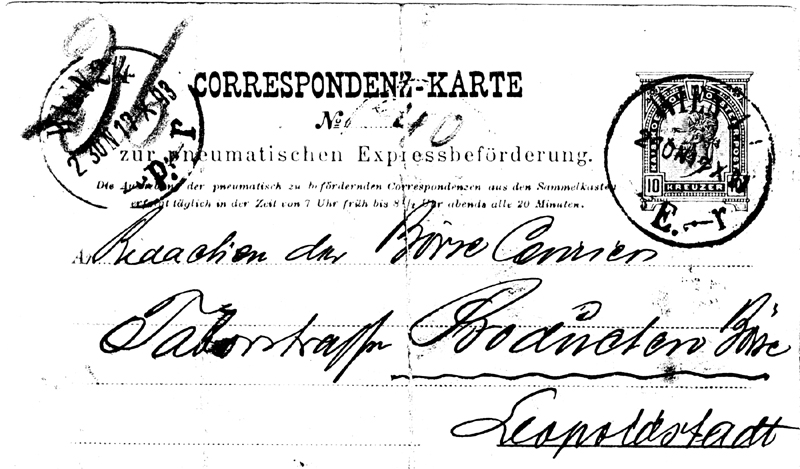 CORRESPONDENZ-KARTE
No
zur pneumatischen Expressbeförderung.
Die der pneumatisch zu befördernden Correspondenzen aus den Sammelkasten
erfolgt täglich in der Zeit von 7 Uhr früh bis Uhr abends alle 20 Minuten.
An Redaction der Börse Courier
Taborstrasse Producten Börse
Leopoldstadt
WIEN
E.—r
10 KREUZER